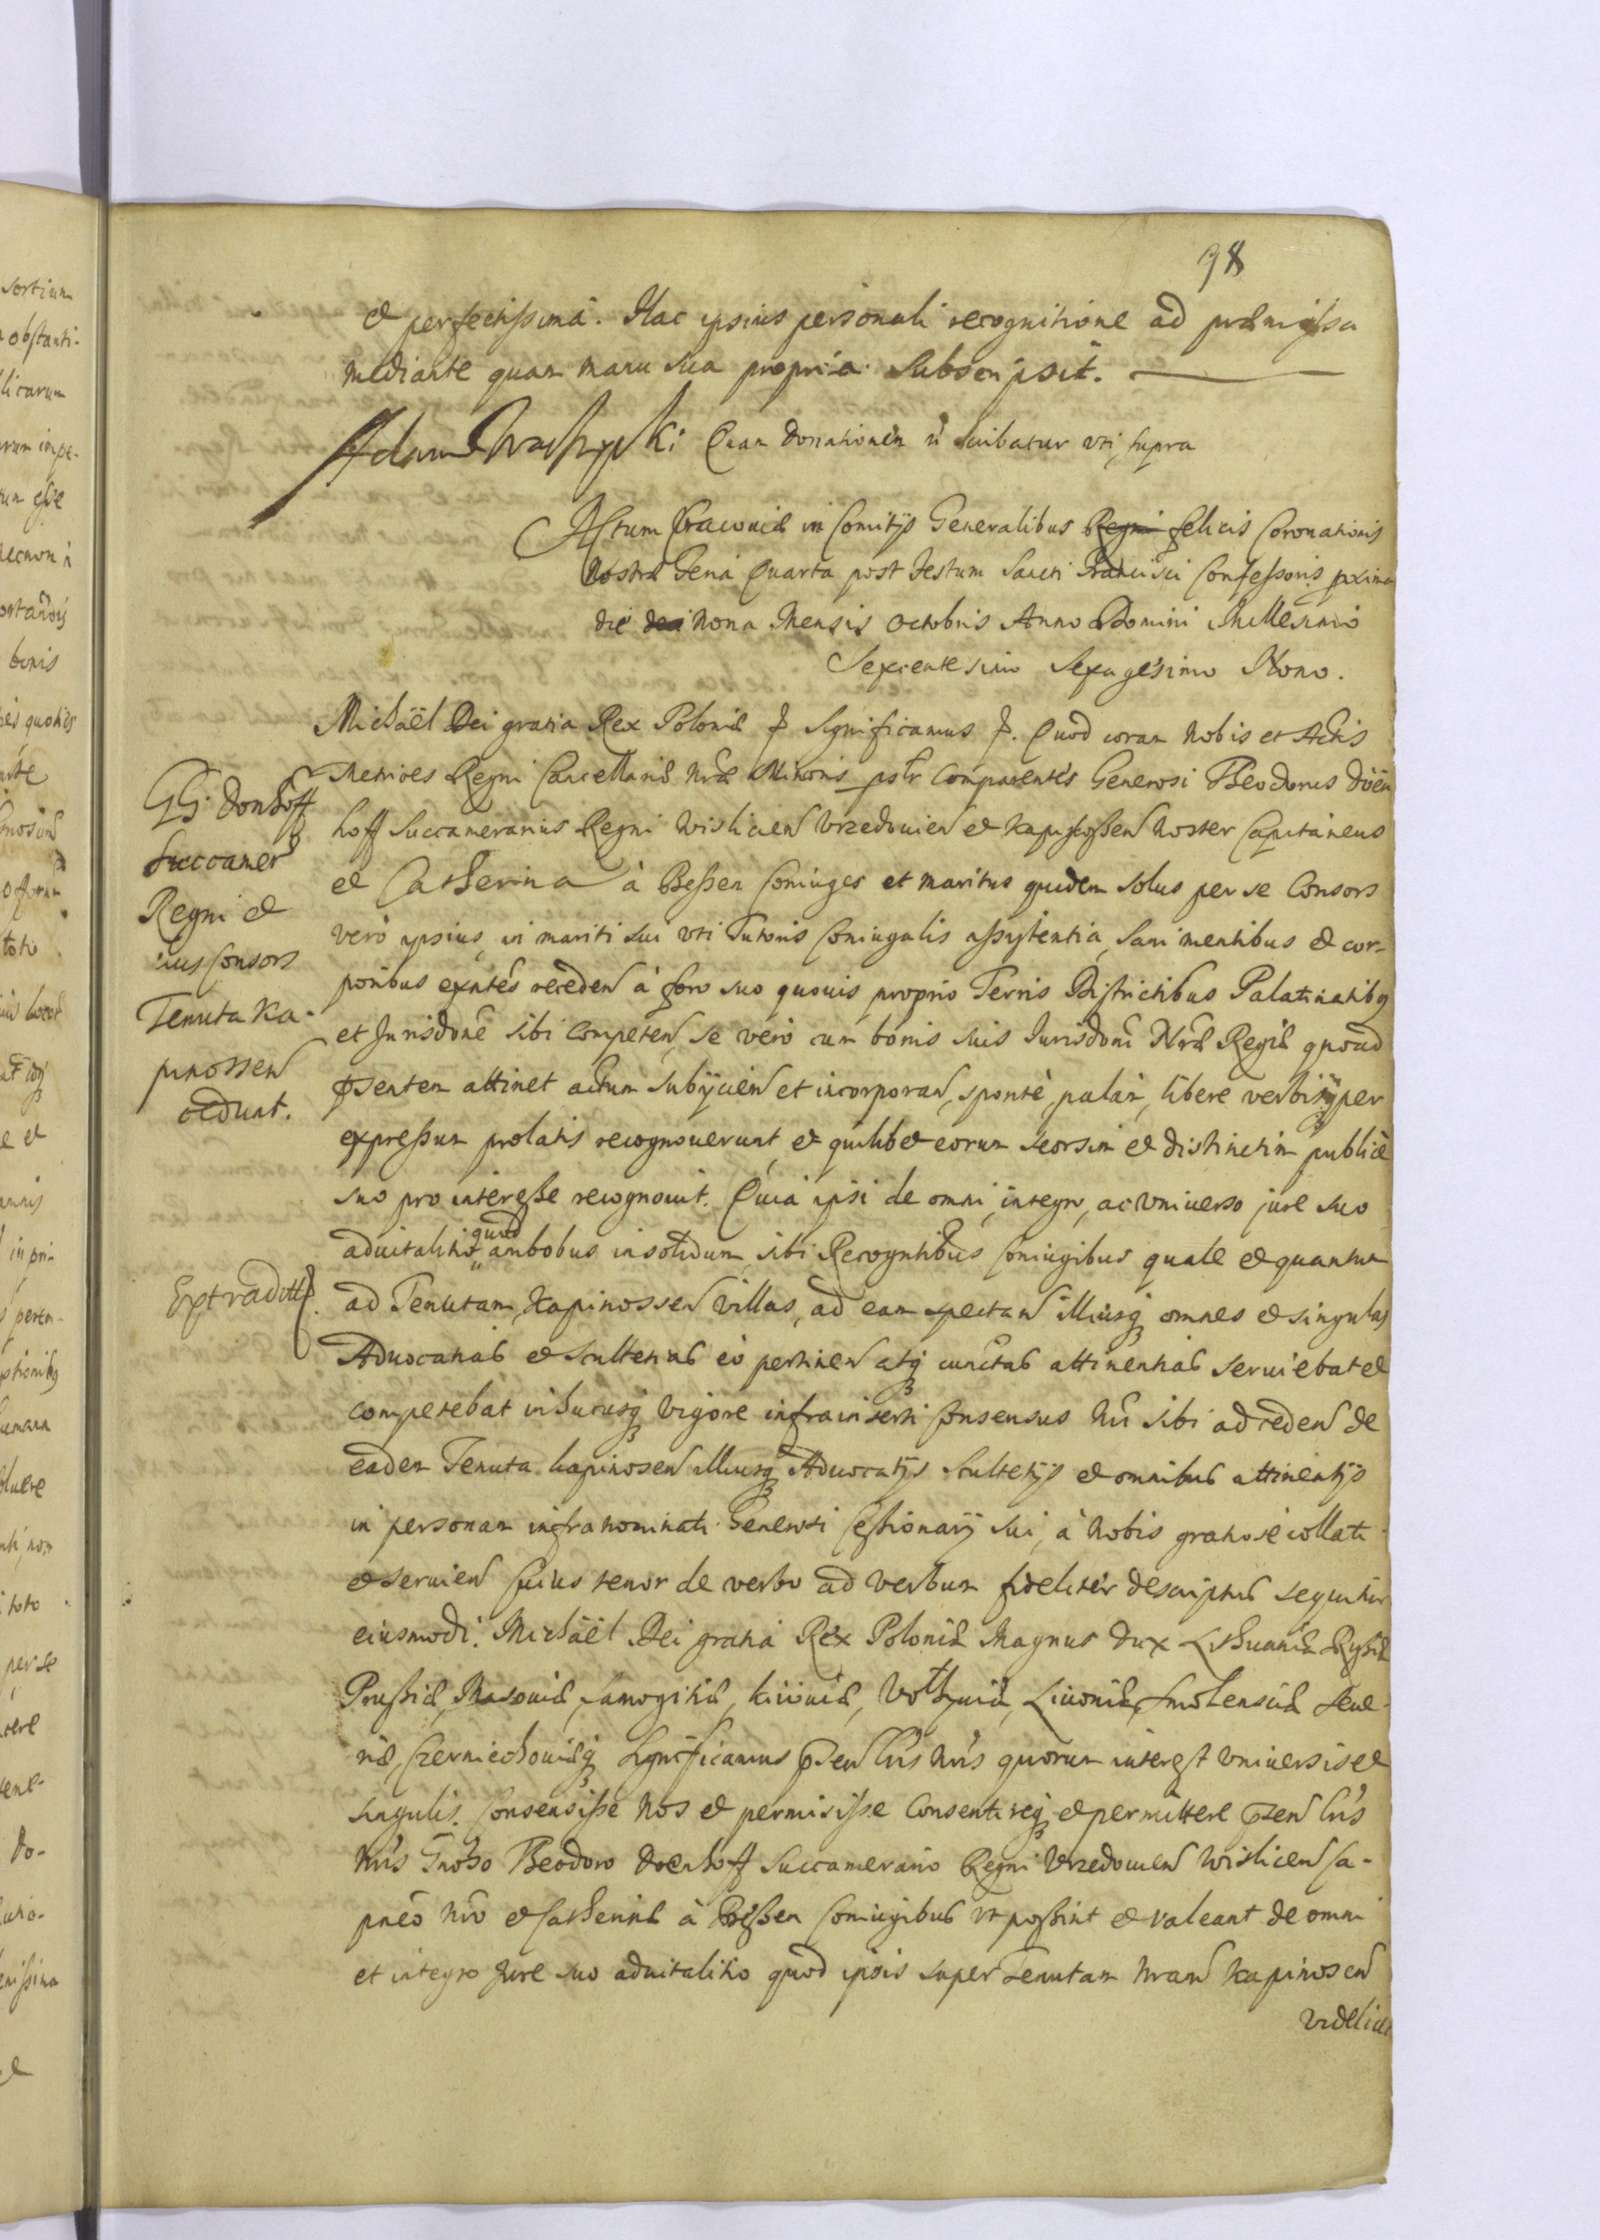 98
et perfectissima. Hac ipsius personali recognitione ad præmissa
mediante quam manu sua propria subscripsit.
Adam Quam donationem scribatur uti supra
Actum Cracoviæ in Comitijs Generalibus Regni felicis Coronationis
Nostræ Feria Quarta post Festum Sancti Francisci Confessoris proxima
die Nona Mensis Octobris Anno Domini Millesimo
Sexcentesimo Sexagesimo Nono.
Michaël Dei gratia Rex Poloniæ Significamus Quod coram Nobis et Actis
Metrices Regni Cancellariæ Nræ Minoris pstr Comparentes Generosi Theodorus Döen
hoff Succamerarius Regni Wislicien Urzedouien et Kapinossen Noster Capitaneus
et Catherina à Bessen Coniuges et maritus quidem solus per se Consors
vero ipsius in mariti sui uti Tutoris Coniugalis assistentia, sani mentibus et cor-
poribus exntes receden à foro suo quouis proprio Terris Districtibus Palatinatibus
et Jurisdone sibi competen, se vero cum bonis suis Jurisdoni Nræ Regiæ quoad
psentem attinet actum subijcien et incorporan, sponte, palam, libere verbisq per
expressum prolatis recognouerunt, et quilibet eorum seorsim et distinctim publicè
suo pro interesse recognouit. Quia ipsi de omni, integro, ac Vniuerso jure suo
aduitalitio quod ambobus insolidum sibi Recogntibus Coniugibus quale et quantum
ad Tenutam Kapinossen Villas, ad eam spectan illiusq omnes et singulas
Aduocatias et Scultetias eò pertinen atq cunctas attinentias seruiebat et
competebat inhucusq vigore infrainserti Consensus Nri sibi ad ceden de
eadem Tenuta kapinosen illiusq Aduocatijs Scultetijs et omnibus attinentijs
in personam infranominati Generosi Cessionarij sui, à Nobis gratiosè collati
et seruien Cuius tenor de verbo ad verbum fideliter descriptus sequitur
eiusmodi. Michaël Dei gratia Rex Poloniæ Magnus Dux Lithuaniæ Russiæ
Prussiæ, Masouiæ, Samogitiæ, kiiouiæ, Volhyniæ, Liuoniæ, Smolensciæ Seue-
riæ, Czerniechouiæq Significamus psen lris Nris quorum interest Vniuersis et
singulis. Consensisse Nos et permisisse Consentireq et permittere psen lris
Nris Gnoso Theodoro Doenhoff Succamerario Regni Urzedouien Wislicen Ca-
pneo Nro et Catherinæ à Bessen Coniugibus vt possint et valeant de omni
et integro Jure suo aduitalitio quod ipsis super Tenutam Nram Kapinosen
videlicet
GG. Donhoff
Succamer
Regni et
eius Consors
Tenuta Ka-
pinossen
cedunt.
Extradit